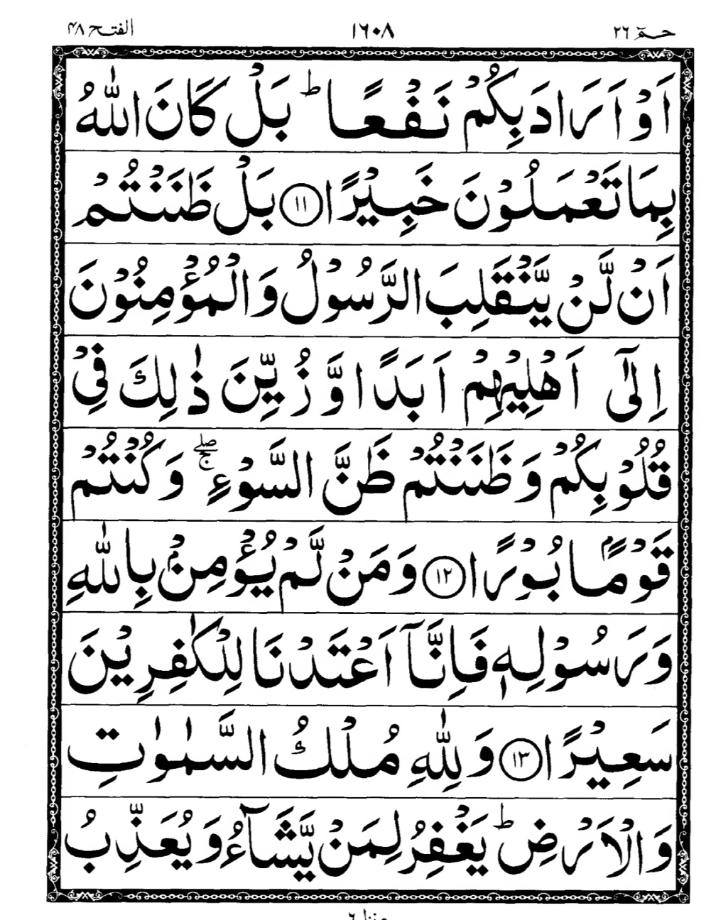 حٰمٓ ٢٦ ١٦٠٨ الفتح ٤٨
اَوْ اَرَادَ بِكُمْ نَفْعًا ؕ بَلْ كَانَ اللّٰهُ
بِمَا تَعْمَلُوْنَ خَبِيْرًا ﴿١١﴾ بَلْ ظَنَنْتُمْ
اَنْ لَّنْ يَّنْقَلِبَ الرَّسُوْلُ وَالْمُؤْمِنُوْنَ
اِلٰٓى اَهْلِيْهِمْ اَبَدًا وَّ زُيِّنَ ذٰلِكَ فِيْ
قُلُوْبِكُمْ وَظَنَنْتُمْ ظَنَّ السَّوْءِ ۖۚ وَكُنْتُمْ
قَوْمًۢا بُوْرًا ﴿١٢﴾ وَمَنْ لَّمْ يُؤْمِنْۢ بِاللّٰهِ
وَرَسُوْلِهٖ فَاِنَّاۤ اَعْتَدْنَا لِلْكٰفِرِيْنَ
سَعِيْرًا ﴿١٣﴾ وَلِلّٰهِ مُلْكُ السَّمٰوٰتِ
وَالْاَرْضِ ؕ يَغْفِرُ لِمَنْ يَّشَآءُ وَيُعَذِّبُ